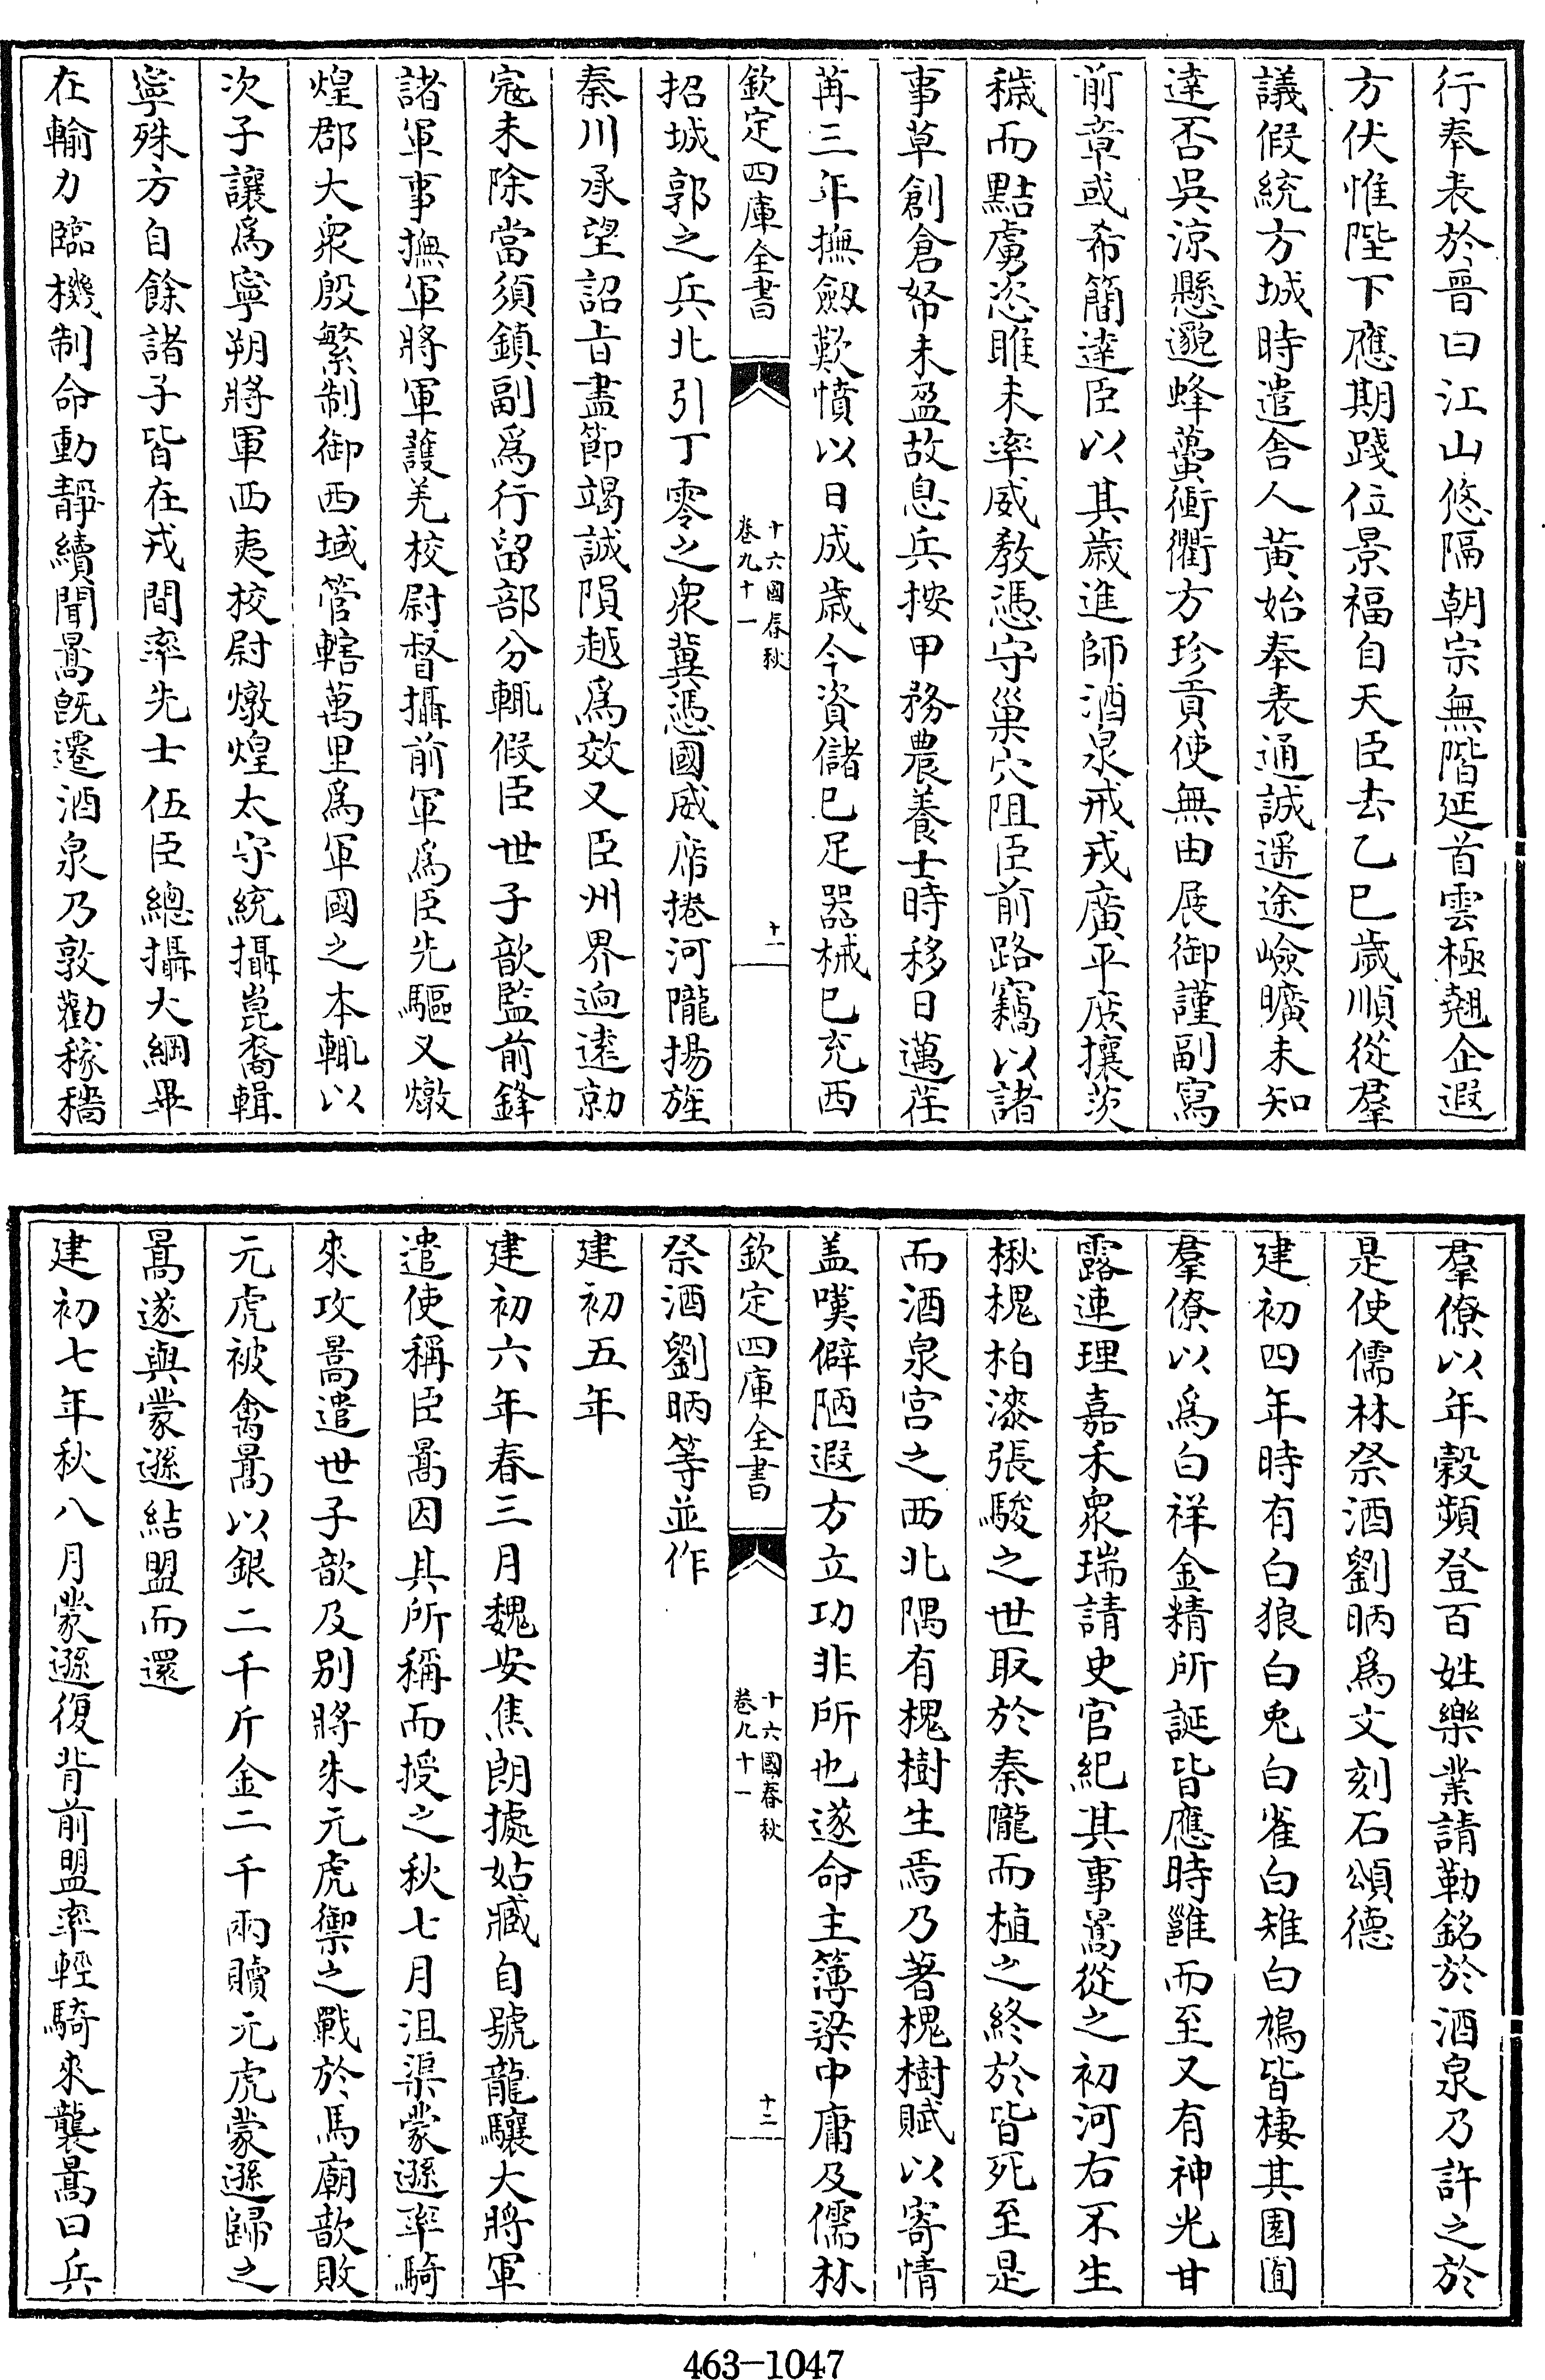 行奉表於晉曰江山悠隔朝宗無階延首雲極翹企遐
方伏惟陛下應期踐位景福自天臣去乙巳歲順從羣
議假統方城時遣舍人黃始奉表通誠遥途嶮曠未知
達否吳涼懸邈蜂蠆衝衢方珍貢使無由展御謹副寫
前章或希簡達臣以其歲進師酒泉戒戎廣平庶攘茨
穢而黠虜恣睢未率威教憑守巢穴阻臣前路竊以諸
事草創倉帑未盈故息兵按甲務農養士時移日邁荏
苒三年撫劔歎憤以日成歲今資儲已足器械已充西
欽定四庫全書
十六國春秋
卷九十一
十一
招城郭之兵北引丁零之衆冀憑國威席捲河隴揚旌
秦川承望詔旨盡節竭誠隕越爲效又臣州界迥遠勍
寇未除當須鎮副爲行留部分輒假臣世子歆監前鋒
諸軍事撫軍將軍護羌校尉督攝前軍爲臣先驅又燉
煌郡大衆殷繁制御西域管轄萬里爲軍國之本輒以
次子讓爲寧朔將軍西夷校尉燉煌太守統攝崑裔輯
寧殊方自餘諸子皆在戎間率先士伍臣總攝大綱畢
在輸力臨機制命動靜續聞暠旣遷酒泉乃敦勸稼穡
羣僚以年穀頻登百姓樂業請勒銘於酒泉乃許之於
是使儒林祭酒劉昞爲文刻石頌德
建初四年時有白狼白兎白雀白雉白鳩皆棲其園囿
羣僚以爲白祥金精所誕皆應時邕而至又有神光甘
露連理嘉禾衆瑞請史官紀其事暠從之初河右不生
楸槐柏漆張駿之世取於秦隴而植之終於皆死至是
而酒泉宫之西北隅有槐樹生焉乃著槐樹賦以寄情
盖嘆僻陋遐方立功非所也遂命主簿梁中庸及儒林
欽定四庫全書
十六國春秋
卷九十一
十二
祭酒劉昞等並作
建初五年
建初六年春三月魏安焦朗據姑臧自號龍驤大將軍
遣使稱臣暠因其所稱而授之秋七月沮渠蒙遜率騎
來攻暠遣世子歆及别將朱元虎禦之戰於馬廟歆敗
元虎被禽暠以銀二千斤金二千兩贖元虎蒙遜歸之
暠遂與蒙遜結盟而還
建初七年秋八月蒙遜復背前盟率輕騎來襲暠曰兵
463-1047